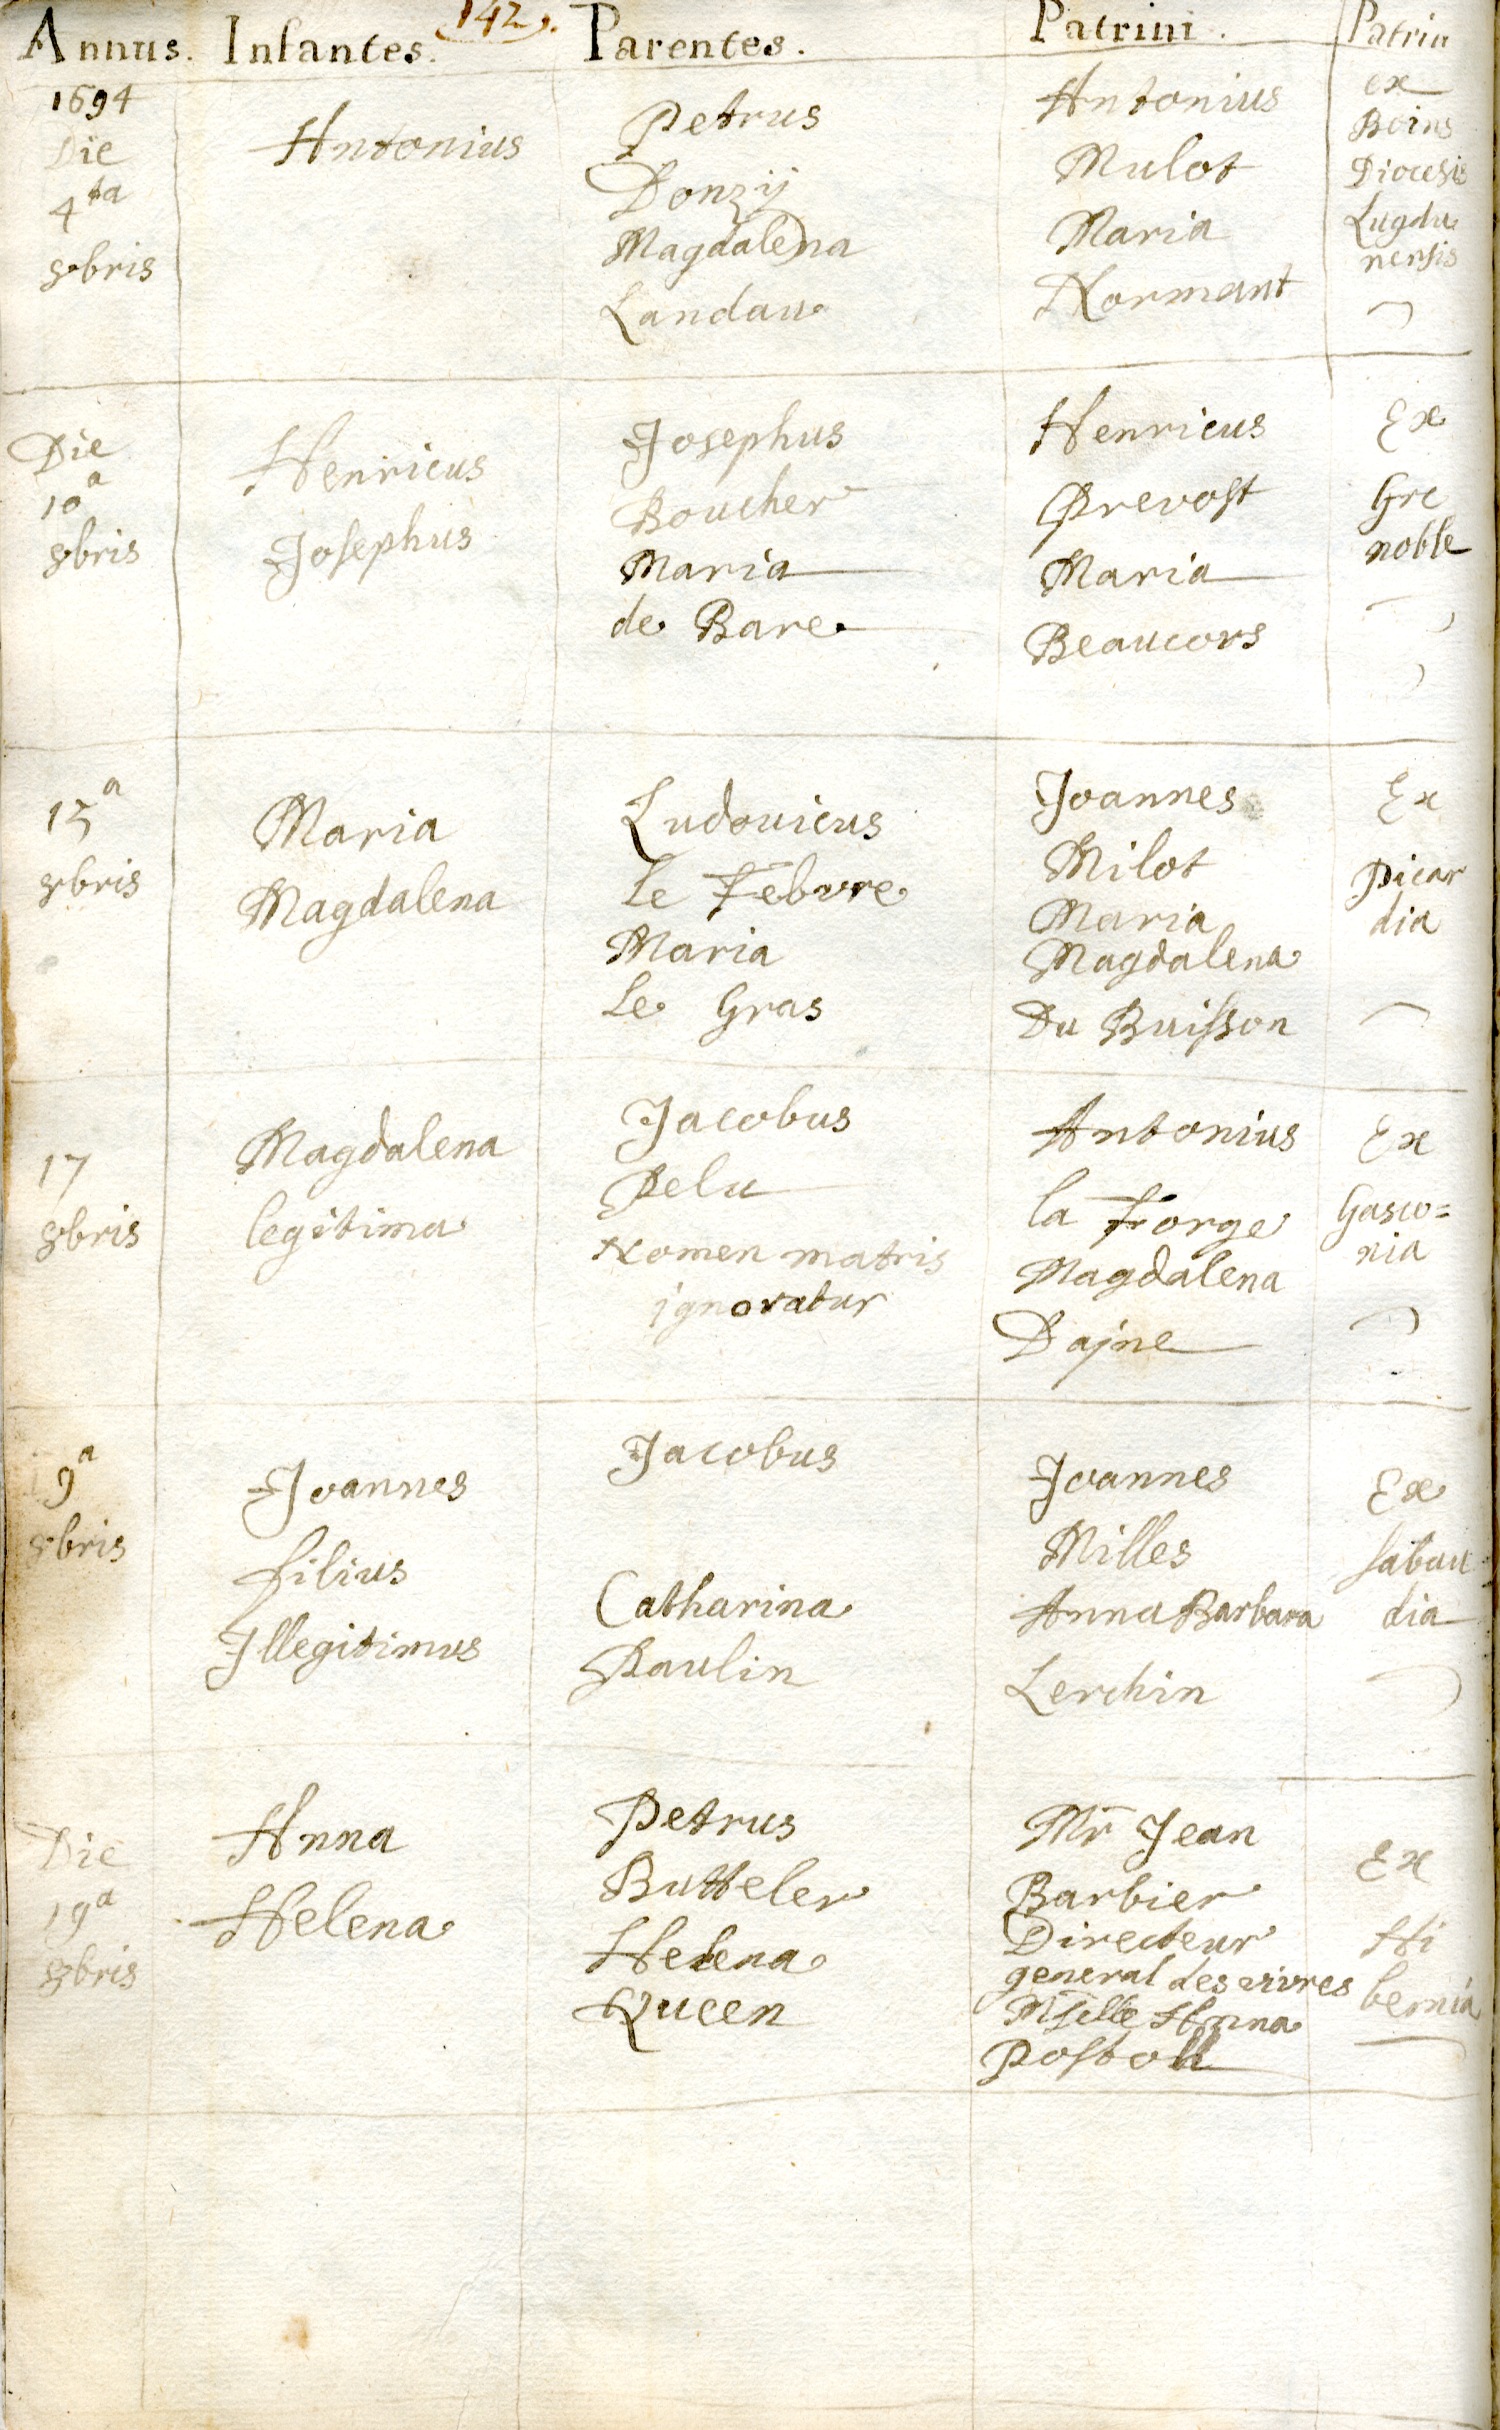 142.
Annus. Infantes. Parentes. Patrini. Patria
1694
Die
4ta
8bris
Antonius
Petrus
Donzij
Magdalena
Landau
Antonius
Mulot
Maria
Normant
ex
Boins
Diocesis
Lugdu
nensis
Die
10a
8bris
Henricus
Josephus
Josephus
Boucher
Maria
de Bare
Henricus
Prevost
Maria
Beaucors
Ex
Gre
noble
15a
8bris
Maria
Magdalena
Ludouicus
Le Febvre
Maria
Le Gras
Joannes
Milot
Maria
Magdalena
Du Buisson
Ex
Picar
dia
17
8bris
Magdalena
legitima
Jacobus
Pelu
Nomen matris
ignoratur
Antonius
la Forge
Magdalena
Dajne
Ex
Gasco=
nia
9a
8bris
Joannes
filius
Illegitimus
Jacobus
Catharina
Paulin
Joannes
Milles
Anna Barbara
Lerchin
Ex
Sabau
dia
Die
19a
8bris
Anna
Helena
Petrus
Butteler
Helena
Queen
Mr Jean
Barbier
Directeur
general des vivres
Mselle Anna
Ex
Hi
bernia